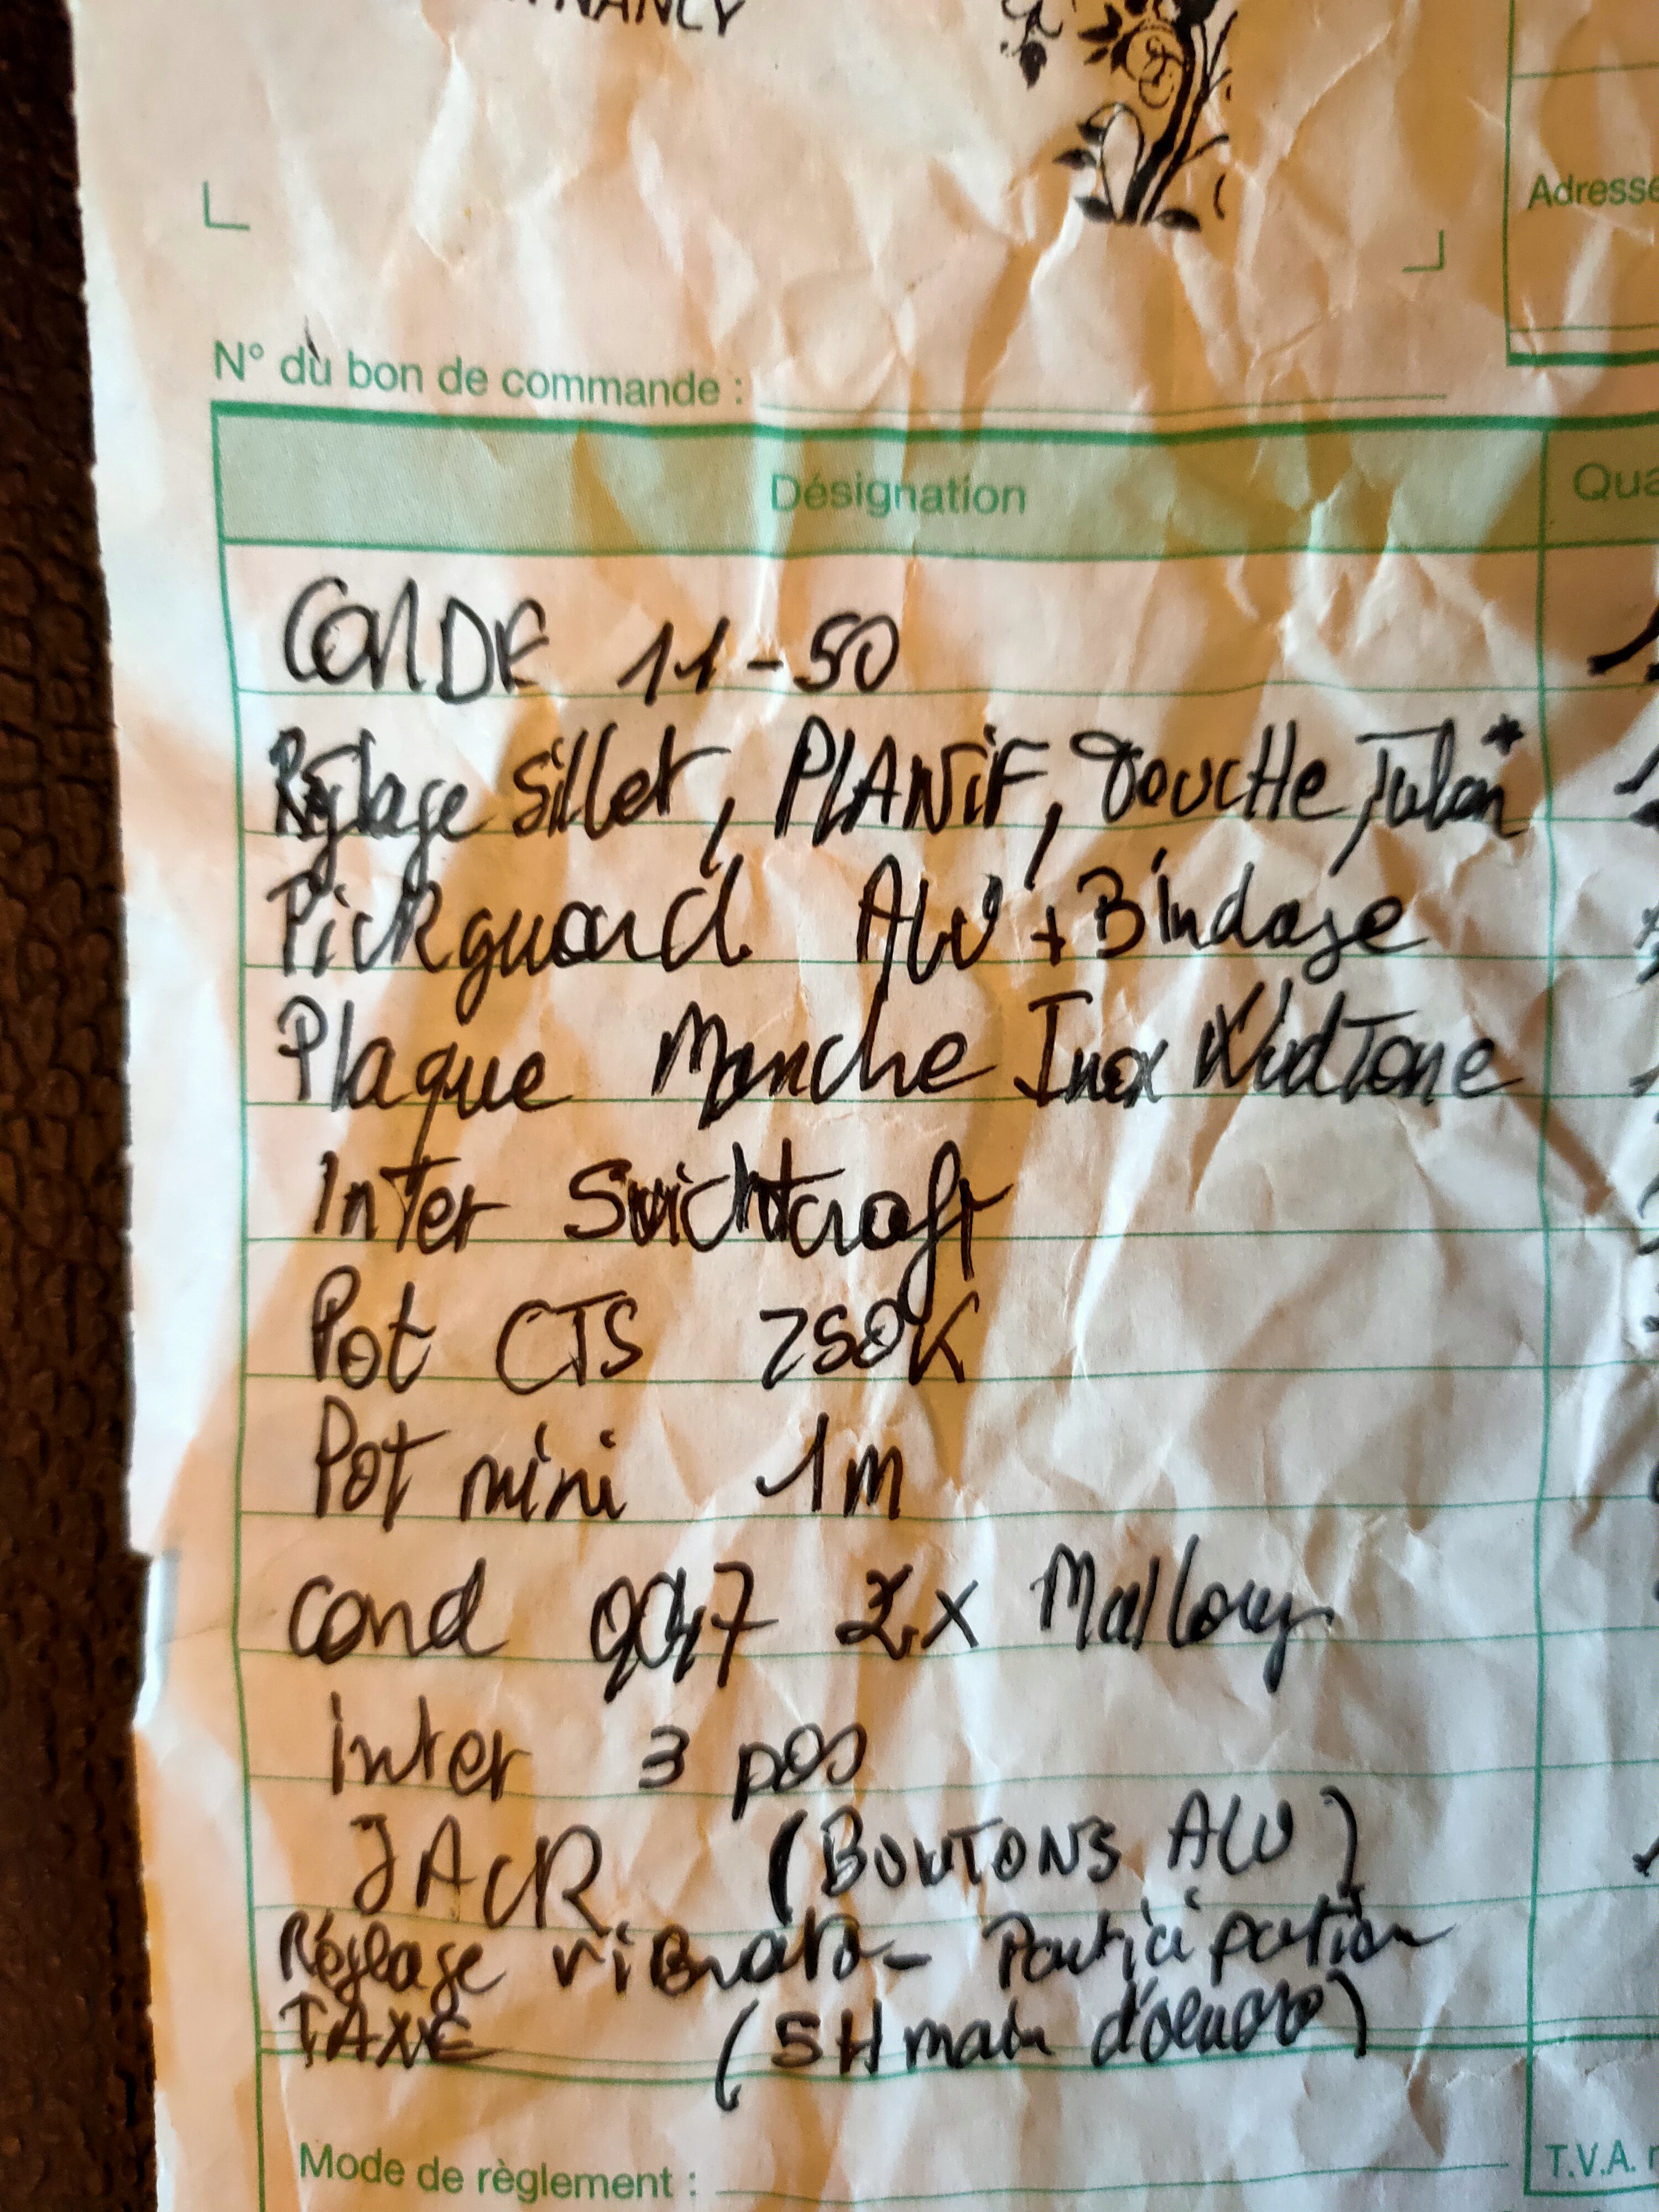 NANCY
Adresse
N° du bon de commande :
Désignation
Qua
CORDE 11-50
Réglage Sillet, PLANIF, TOUCHE,
Pickguard ALU + Bindage
Plaque Manche Inox WudTone
InTer Swichtcraft
Pot CTS 250K
Pot mini 1m
cond 0047 2x Mallory
inter 3 pos
JACK (BOUTONS ALU)
Réglage viBrato - Participation
TAXE (5H main d'oeuvre)
Mode de règlement :
T.V.A.